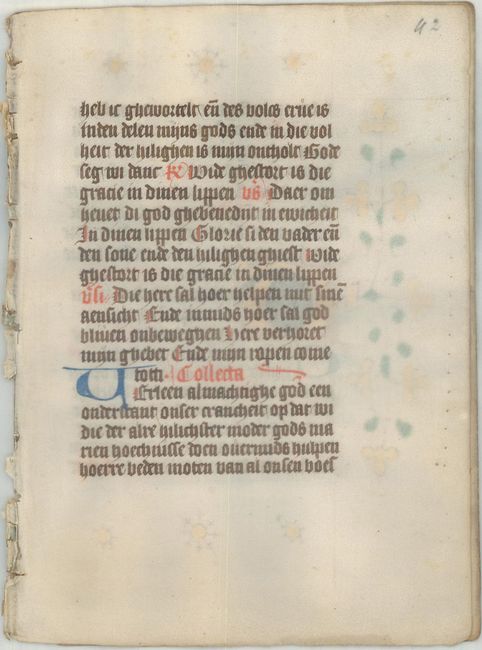 42
heb ic ghewortelt eñ des volcs erue is
in den delen mijns gods ende in die vol
heit der hilighen is mijn ontholt Gode
seg wi danc R Wide ghestort is die
gracie in dinen lippen vs Daer om
heuet di god ghebenedijt in ewicheit
In dinen lippen Glorie si den vader eñ
den sone ende den hilighen ghiest Wide
ghestort is die gracie in dinen lippen
vsi Die here sal hoer helpen mit sinē
aensicht Ende inmids hoer sal god
bliuen onbeweghen Here verhoret
mijn ghebet Ende mijn ropen come
totti Collecta
Verleen almachtighe god een
onderstant onser crancheit op dat wi
die der alre hilichster moder gods ma
rien hoechnisse doen ouermids hulpen
hoerre beden moten van al onsen boes